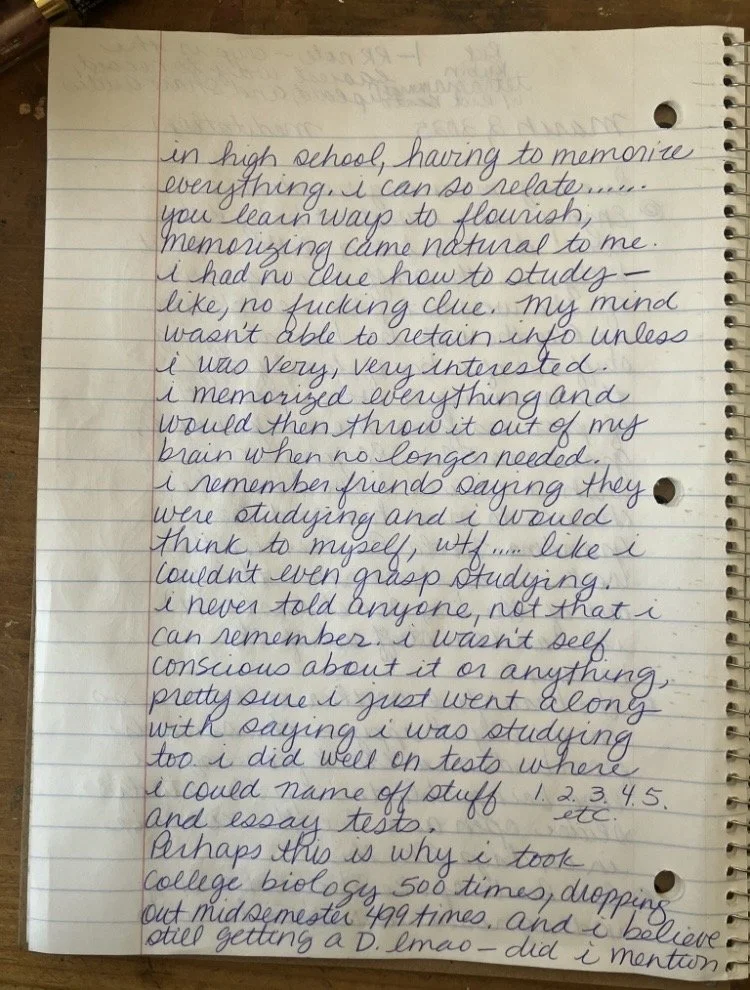 in high school, having to memorize
everything. i can so relate......
you learn ways to flourish,
memorizing came natural to me.
i had no clue how to study —
like, no fucking clue. My mind
wasn't able to retain info unless
i was very, very interested.
i memorized everything and
would then throw it out of my
brain when no longer needed.
i remember friends saying they
were studying and i would
think to myself, wtf..... like i
couldn't even grasp studying.
i never told anyone, not that i
can remember. i wasn't self
conscious about it or anything,
pretty sure i just went along
with saying i was studying
too. i did well on tests where
i could name off stuff 1. 2. 3. 4. 5.
etc.
and essay tests.
Perhaps this is why i took
college biology 500 times, dropping
out midsemester 499 times. and i believe
still getting a D. lmao — did i mention